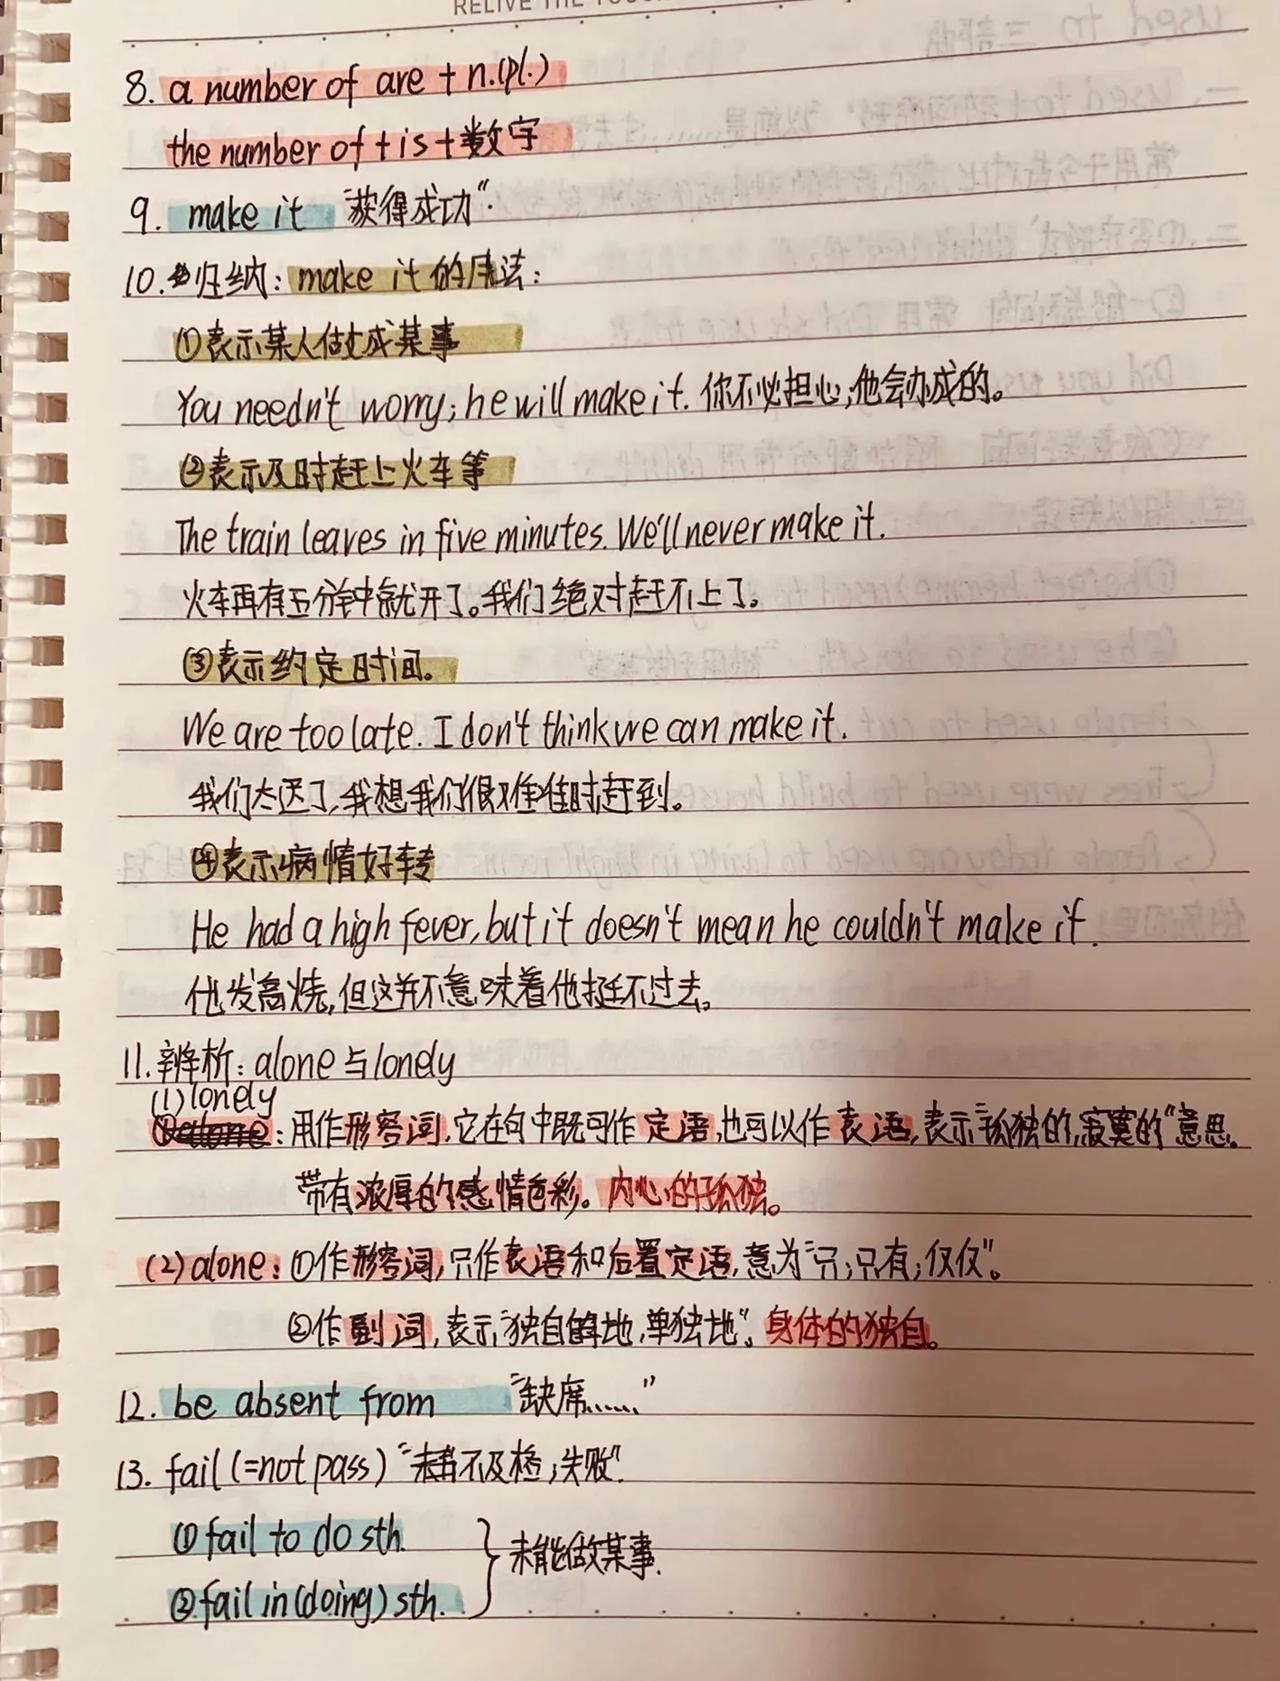 RELIVE THE
8. a number of are + n.(pl.)
the number of + is + 数字
9. make it "获得成功".
10. 归纳: make it 的用法:
①表示某人做成某事
You needn't worry; he will make it. 你不必担心;他会办成的。
②表示及时赶上火车等
The train leaves in five minutes. We'll never make it.
火车再有五分钟就开了。我们绝对赶不上了。
③表示约定时间。
We are too late. I don't think we can make it.
我们太迟了,我想我们很难准时赶到。
④表示病情好转
He had a high fever, but it doesn't mean he couldn't make it.
他发高烧,但这并不意味着他挺不过去。
11. 辨析: alone 与 lonely
(1) lonely
: 用作形容词,它在句中既可作定语,也可以作表语,表示"孤独的,寂寞的"意思。
带有浓厚的感情色彩。内心的孤独。
(2) alone: ①作形容词,只作表语和后置定语,意为"只;只有;仅仅"。
②作副词,表示"独自地,单独地"。身体的独自。
12. be absent from "缺席......"
13. fail (=not pass) "不及格;失败".
① fail to do sth.
未能做某事.
② fail in (doing) sth.